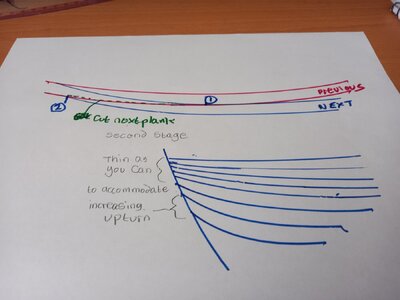 1
PREVIOUS
2
NEXT
Cut next plank
second stage
Thin as
you can
to accommodate
increasing
upturn